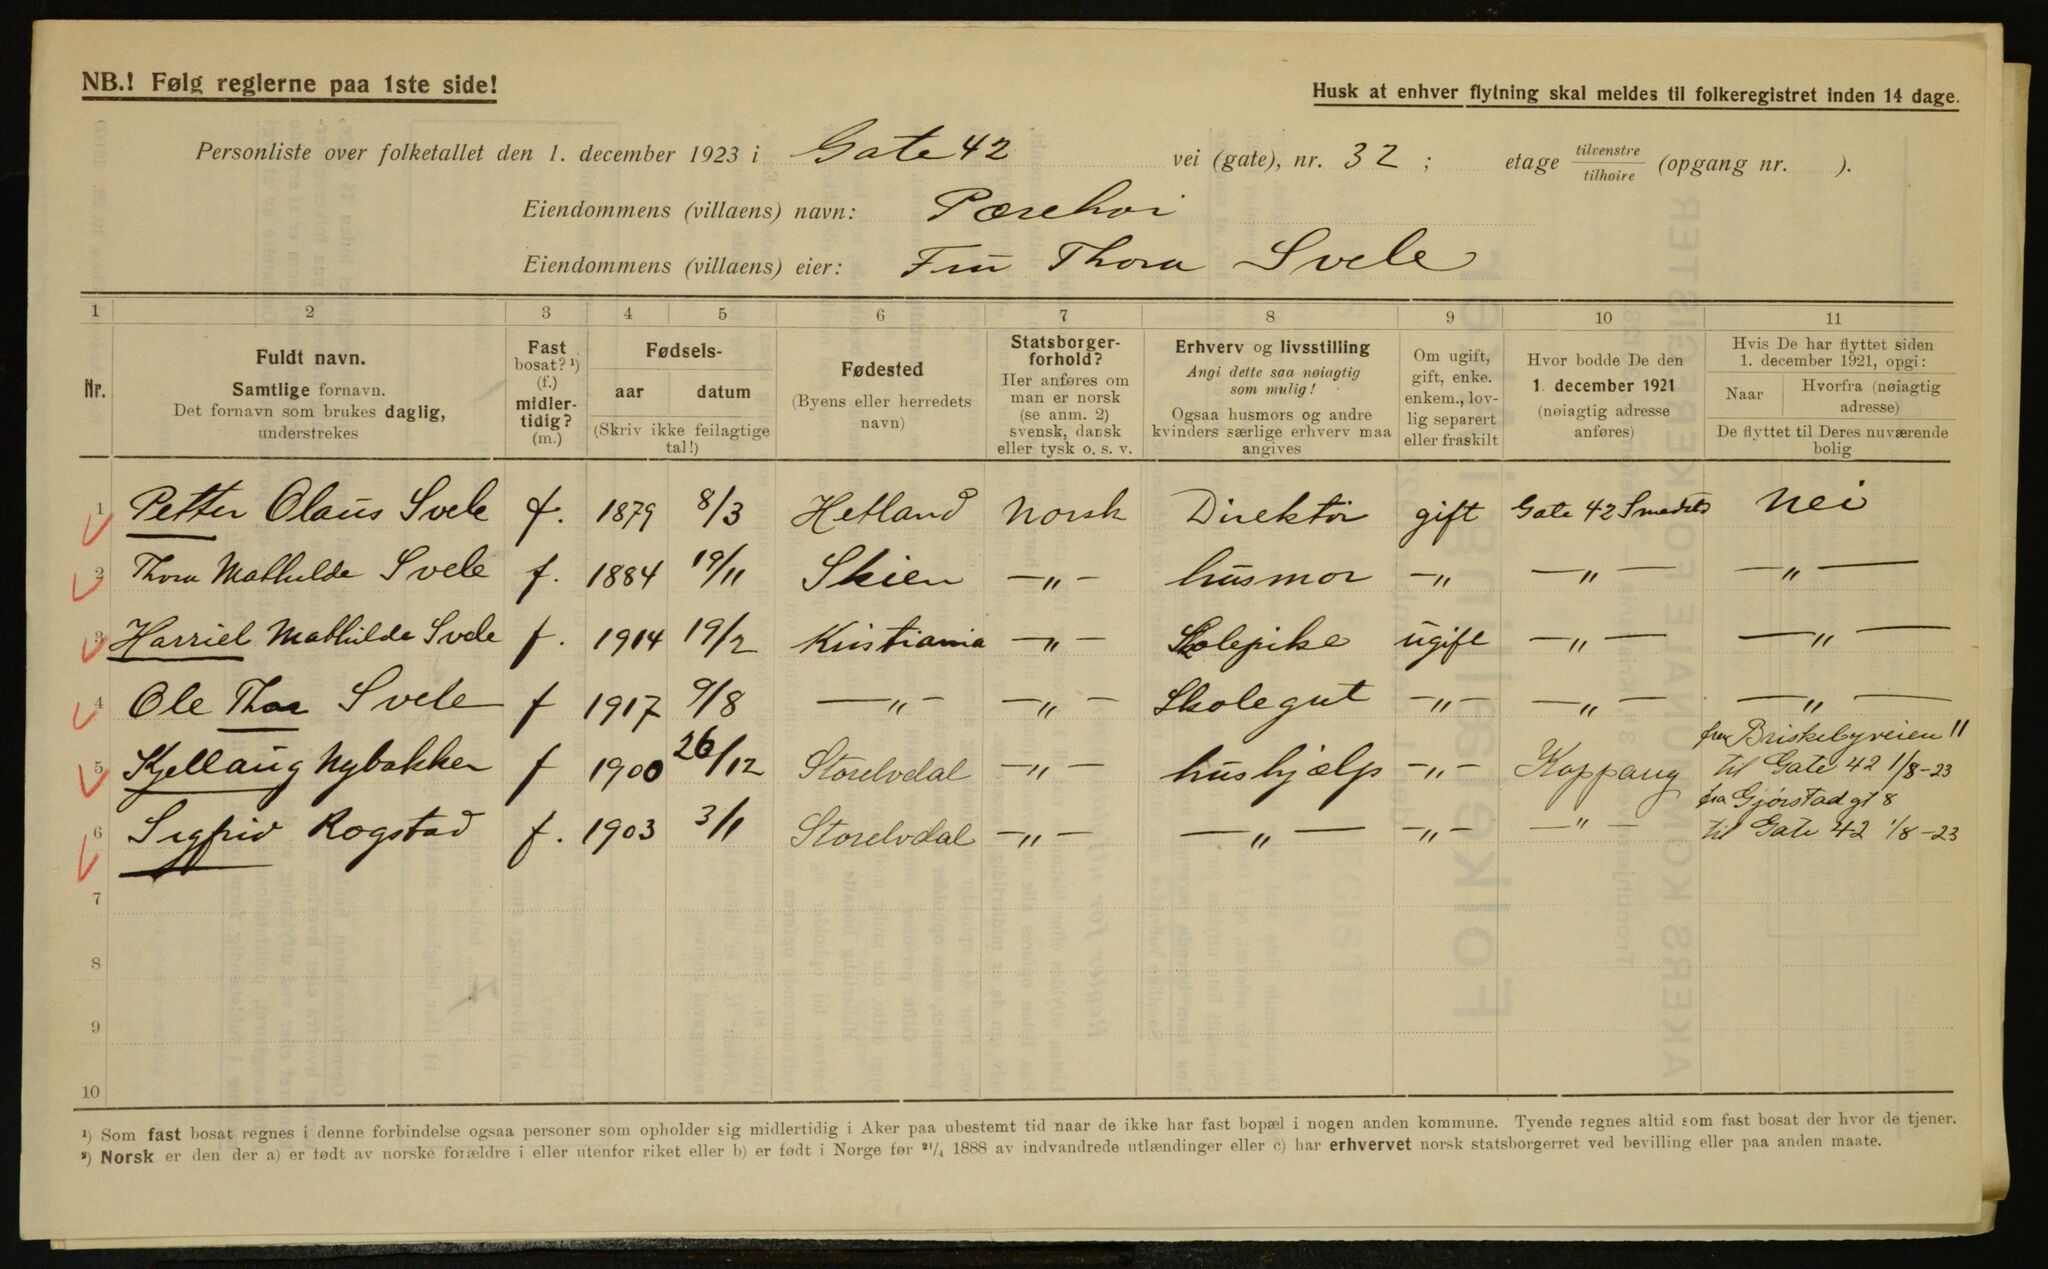 NB.! Følg reglerne paa 1ste side!
Husk at enhver flytning skal meldes til folkeregistret inden 14 dage.
Personliste over folketallet den 1. december 1923 i Gate 42 vei (gate), nr. 32 ; etage tilvenstre tilhøire (opgang nr. ).
Eiendommens (villaens) navn: Pærehoi
Eiendommens (villaens) eier: Fru Thora Svele
1 2 3 4 5 6 7 8 9 10 11
Nr.
Fuldt navn.
Samtlige fornavn.
Det fornavn som brukes daglig,
understrekes
Fast
bosat? ¹)
(f.)
midler-
tidig?
(m.)
Fødsels-
aar datum
(Skriv ikke feilagtige
tal!)
Fødested
(Byens eller herredets
navn)
Statsborger-
forhold?
Her anføres om
man er norsk
(se anm. 2)
svensk, dansk
eller tysk o. s. v.
Erhverv og livsstilling
Angi dette saa nøiagtig
som mulig!
Ogsaa husmors og andre
kvinders særlige erhverv maa
angives
Om ugift,
gift, enke.
enkem., lov-
lig separert
eller fraskilt
Hvor bodde De den
1. december 1921
(nøiagtig adresse
anføres)
Hvis De har flyttet siden
1. december 1921, opgi:
Naar
Hvorfra (nøiagtig
adresse)
De flyttet til Deres nuværende
bolig
1 Petter Olaus Svele f. 1879 8/3 Hetland Norsk Direktør gift Gate 42 Smedst Nei
2 Thora Mathilde Svele f. 1884 19/11 Skien —„— husmor —„ —„— —„—
3 Harriet Mathilde Svele f. 1914 19/2 Kristiania —„— Skolepike ugift —„— —„—
4 Ole Thor Svele f 1917 9/8 —„— —„— Skolegut —„— —„— —„—
5 Kjellaug Nybakken f 1900 26/12 Storelvdal —„— hushjælp —„— Koppang fra Briskebyveien 11
til Gate 42 1/8-23
6 Sigfrid Rogstad f. 1903 3/1 Storelvdal —„— —„— —„— —„— fra Gjørstad gt 8
til Gate 42 1/8-23
7
8
9
10
¹) Som fast bosat regnes i denne forbindelse ogsaa personer som opholder sig midlertidig i Aker paa ubestemt tid naar de ikke har fast bopæl i nogen anden kommune. Tyende regnes altid som fast bosat der hvor de tjener.
²) Norsk er den der a) er født av norske forældre i eller utenfor riket eller b) er født i Norge før ²¹/₄ 1888 av indvandrede utlændinger eller c) har erhvervet norsk statsborgerret ved bevilling eller paa anden maate.